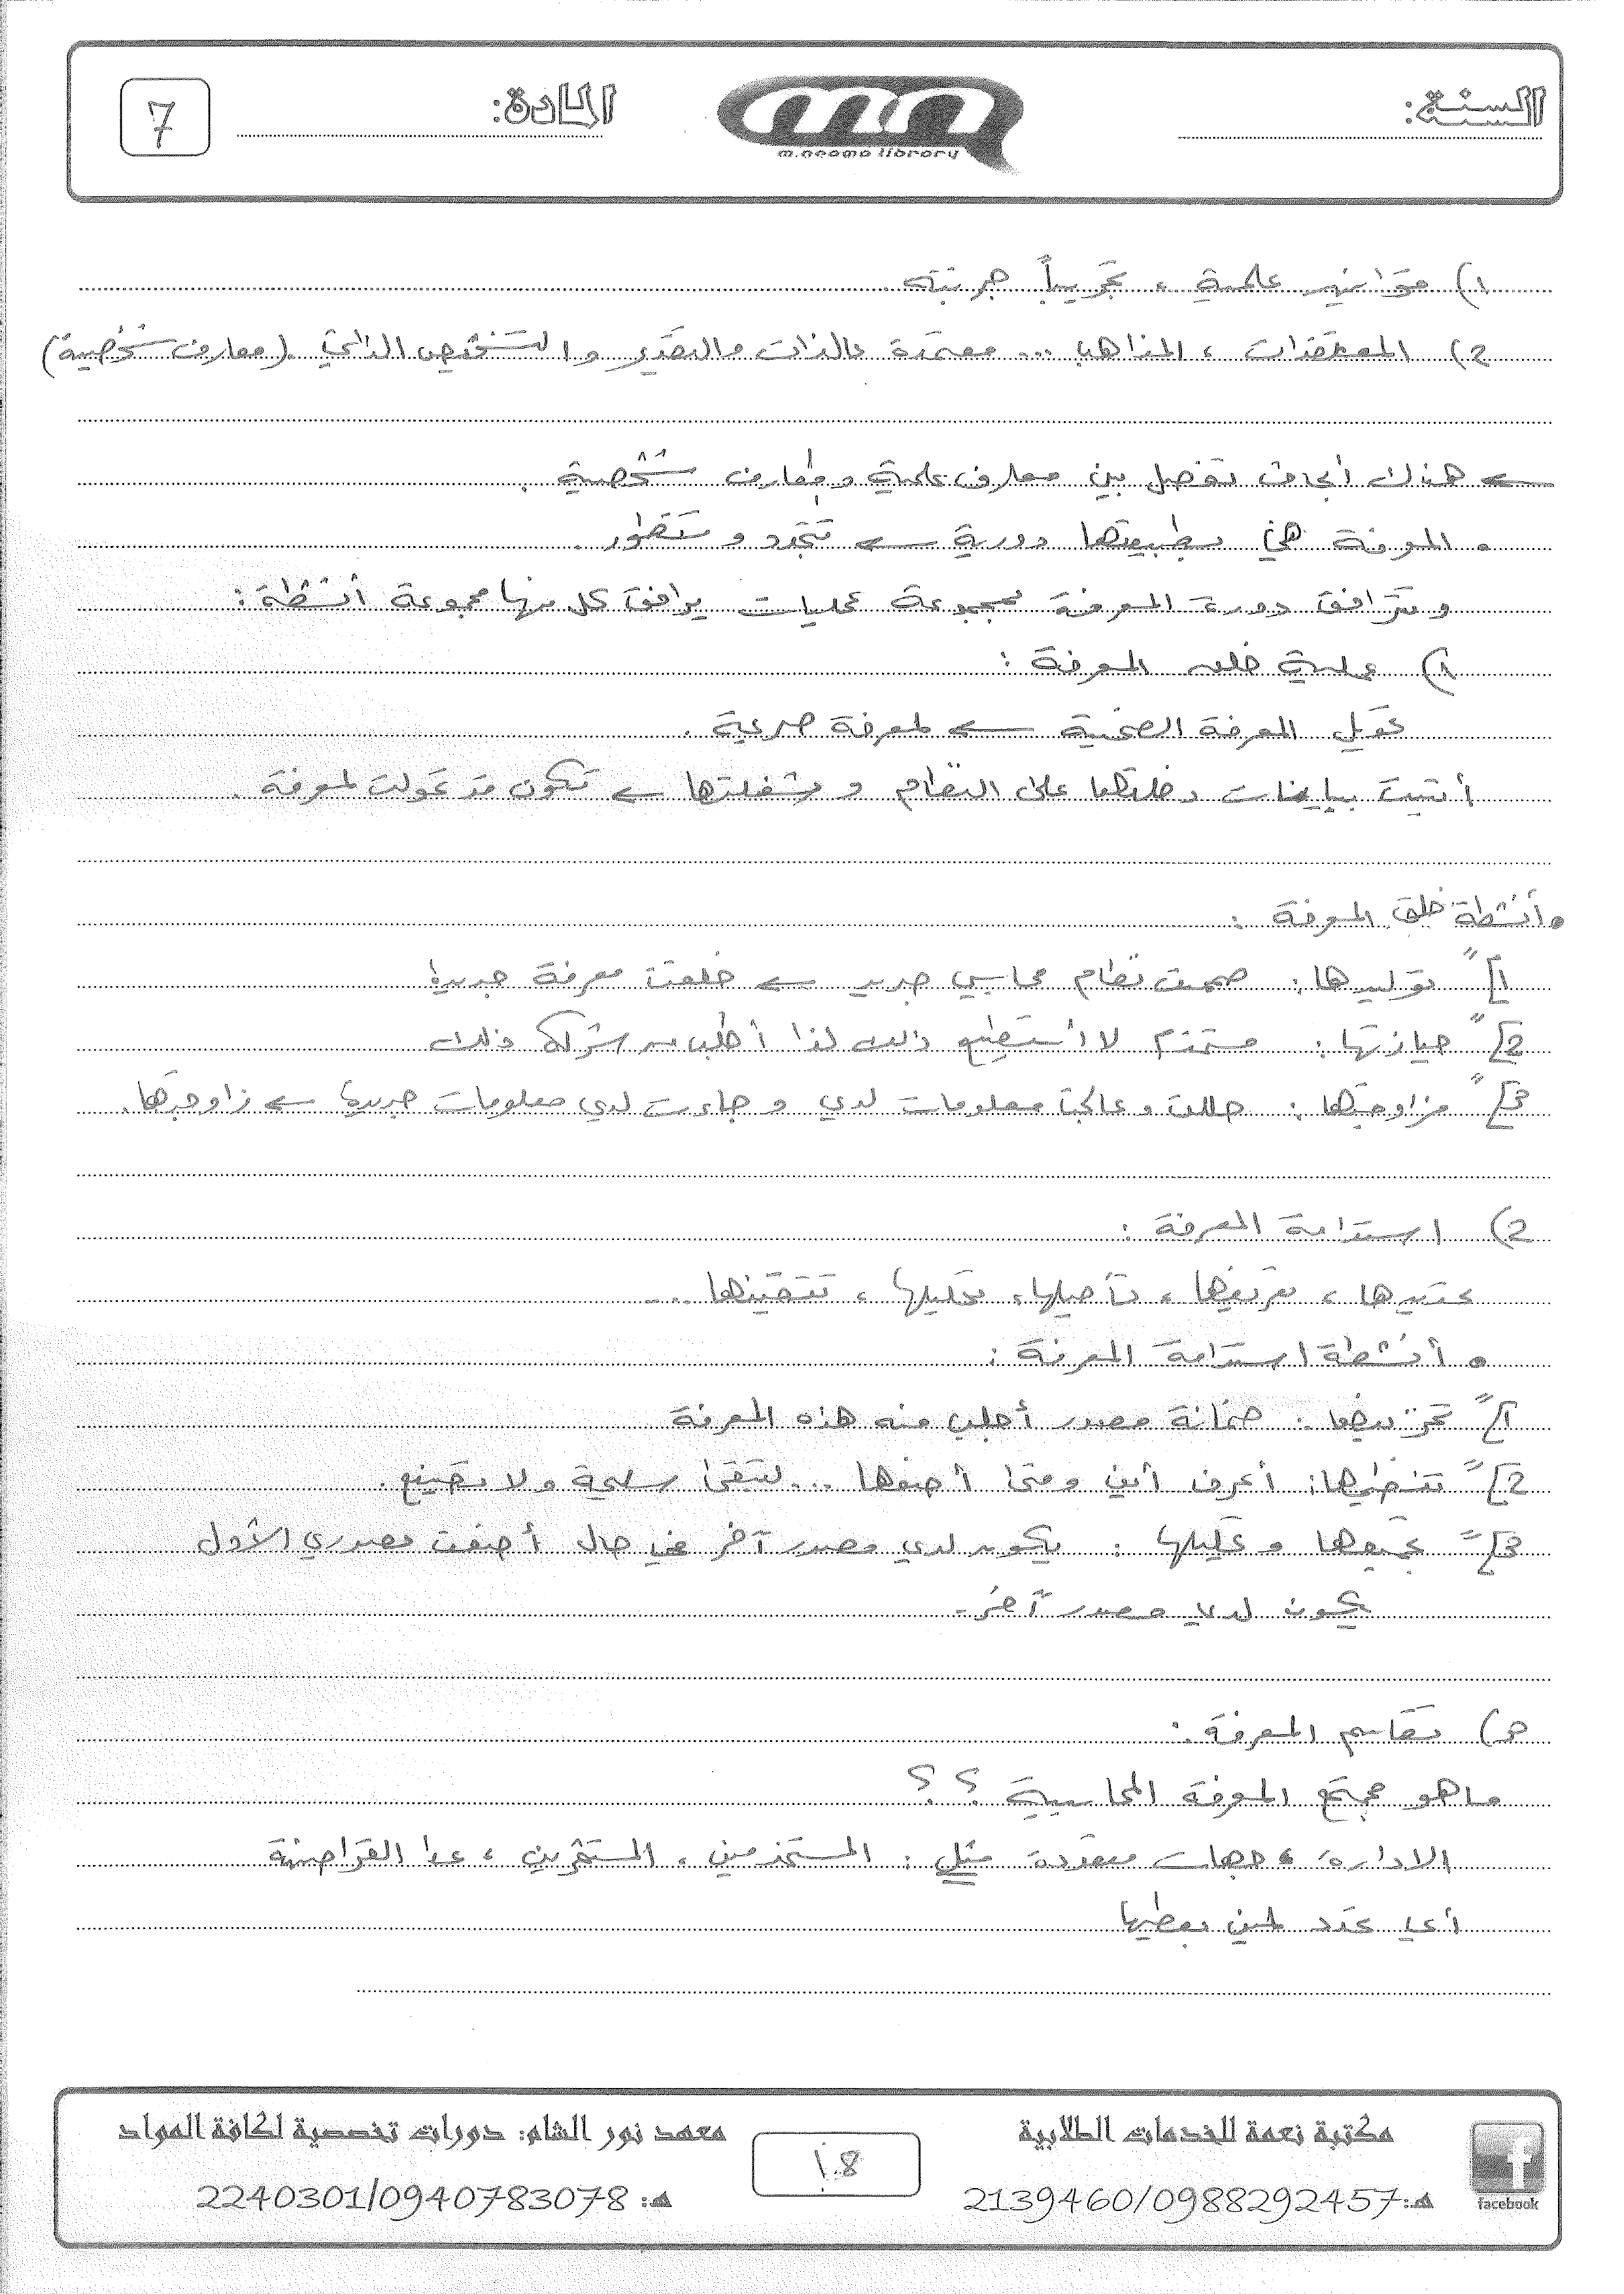 السنة:
mn
m.neama library
المادة:
7
1) قوانين علمية ، تجريباً جربته
2) المعتقدات ، المذاهب ... معتمدة عالذات والتقدير والتشخيص الذاتي . (معارف شخصية)
← هناك أبحاث تفصل بين معارف علمية ومعارف شخصية .
• المعرفة هي بطبيعتها دورية ← تتجدد و تتطور .
و تترافق دورة المعرفة بمجموعة عمليات يرافق كل منها مجموعة أنشطة :
1) عملية خلق المعرفة :
تحويل المعرفة الضمنية ← لمعرفة صريحة .
أتيت ببيانات دخلتها على النظام و شغلتها ← تكون قد تحولت لمعرفة .
• أنشطة خلق المعرفة :
1] ً توليدها : صممت نظام محاسبي جديد ← خلقت معرفة جديدة
2] ً حيازتها : مستخدم لا أستطيع ذلك لذا أطلب من شركة ذلك
3] ً مزاوجتها : حللت و عالجت معلومات لدي و جاءت لدي معلومات جديدة ← زاوجتها .
2) استدامة المعرفة :
تحديدها ، تعريفها ، تأصيلها ، تحليلها ، تنقيتها ...
• أنشطة استدامة المعرفة :
1] ً تخزينها : ضمانة مصدر أجلب منه هذه المعرفة
2] ً تنظيمها : أعرف أين ومتى أضعها ... لتبقى سليمة ولا تضيع .
3] ً تجميعها و تحليلها : يكون لدي مصدر آخر في حال أضعت مصدري الأول
يكون لدي مصدر آخر .
3) تقاسم المعرفة :
ماهو مجتمع المعرفة المحاسبية ؟ ؟
الادارة ، جهات متعددة مثل : المستخدمين ، المستثمرين ، عدا القراصنة
أي تحدد لمين بعطيها
facebook
مكتبة نعمة للخدمات الطلابية
هـ: 2139460/0988292457
معهد نور الشام: دورات تخصصية لكافة المواد
هـ: 2240301/0940783078